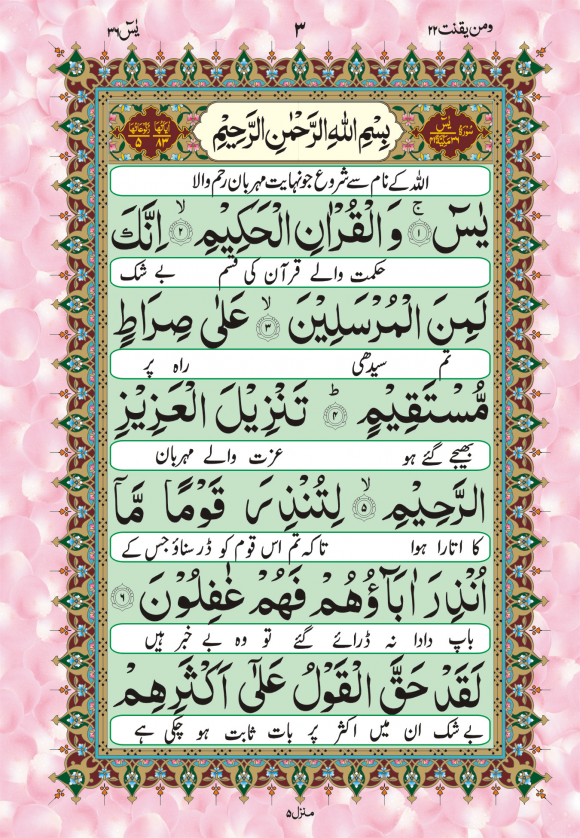 ومن یقنت ۲۲ ۳ یٰسٓ ۳۶
سورۃ یٰسٓ
بِسْمِ اللهِ الرَّحْمٰنِ الرَّحِيْمِ
اٰیاتھا ۸۳ رکوعاتھا ۵
اللہ کے نام سے شروع جو نہایت مہربان رحم والا
يٰسٓ ۚ﴿۱﴾ وَ الْقُرْاٰنِ الْحَكِيْمِ ۙ﴿۲﴾ اِنَّكَ
حکمت والے قرآن کی قسم بے شک
لَمِنَ الْمُرْسَلِيْنَ ۙ﴿۳﴾ عَلٰى صِرَاطٍ
تم سیدھی راہ پر
مُّسْتَقِيْمٍ ؕ﴿۴﴾ تَنْزِيْلَ الْعَزِيْزِ
بھیجے گئے ہو عزت والے مہربان
الرَّحِيْمِ ۙ﴿۵﴾ لِتُنْذِرَ قَوْمًا مَّاۤ
کا اتارا ہوا تاکہ تم اس قوم کو ڈر سناؤ جس کے
اُنْذِرَ اٰبَآؤُهُمْ فَهُمْ غٰفِلُوْنَ ﴿۶﴾
باپ دادا نہ ڈرائے گئے تو وہ بے خبر ہیں
لَقَدْ حَقَّ الْقَوْلُ عَلٰۤى اَكْثَرِهِمْ
بے شک ان میں اکثر پر بات ثابت ہو چکی ہے
منزل ۵